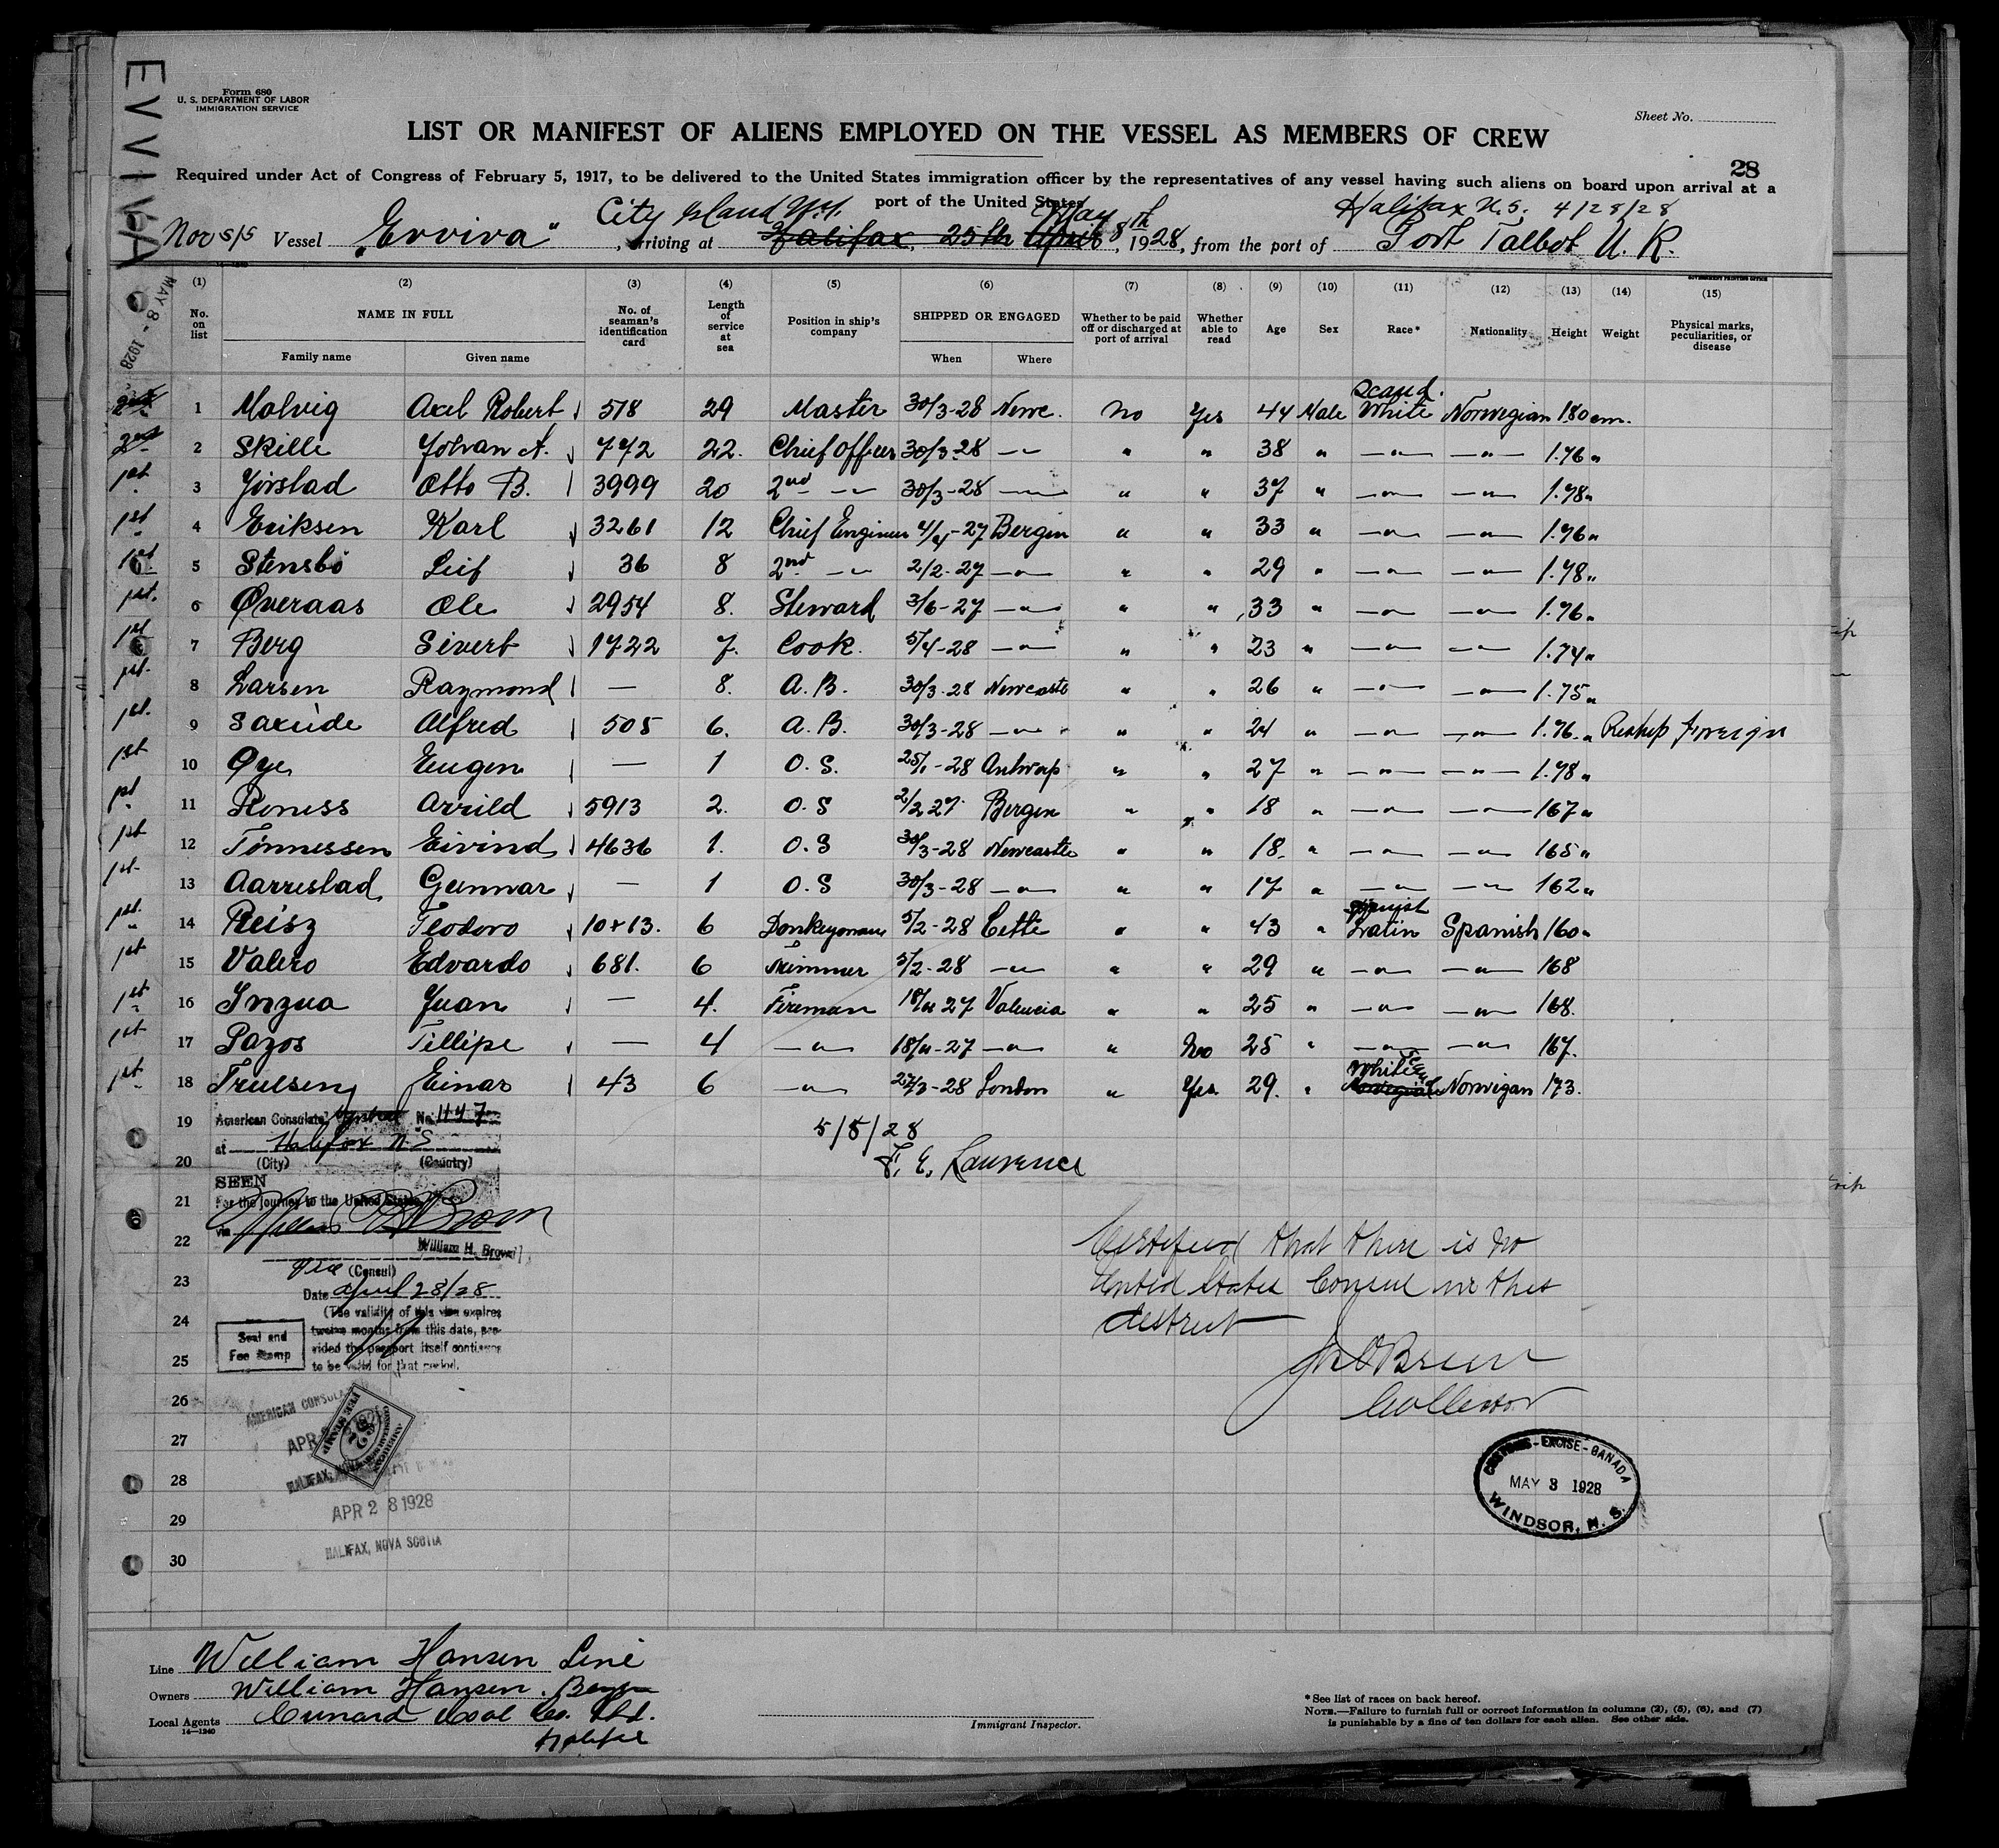 EVVIVA
Form 680
U. S. DEPARTMENT OF LABOR
IMMIGRATION SERVICE
Sheet No.
LIST OR MANIFEST OF ALIENS EMPLOYED ON THE VESSEL AS MEMBERS OF CREW
28
Required under Act of Congress of February 5, 1917, to be delivered to the United States immigration officer by the representatives of any vessel having such aliens on board upon arrival at a
port of the United States
City Island N.Y. May 8th Halifax N.S. 4/28/28
Nor S/S Vessel "Evviva", arriving at Halifax, 25th April, 1928, from the port of Port Talbot U. K.
MAY 8 - 1928
GOVERNMENT PRINTING OFFICE
(1) (2) (3) (4) (5) (6) (7) (8) (9) (10) (11) (12) (13) (14) (15)
No. on list NAME IN FULL Family name Given name No. of seaman's identification card Length of service at sea Position in ship's company SHIPPED OR ENGAGED When Where Whether to be paid off or discharged at port of arrival Whether able to read Age Sex Race* Nationality Height Weight Physical marks, peculiarities, or disease
Scand.
2nd 1 Molvig Axel Robert 518 29 Master 30/3-28 Newc. No Yes 44 Male White Norwegian 180 cm.
2nd 2 Skille Johan A. 772 22. Chief Officer 30/3-28 —"— " " 38 " —"— —"— 1.76 "
1st 3 Jörstad Otto B. 3999 20 2nd —"— 30/3-28 —"— " " 37 " —"— —"— 1.78 "
1st 4 Eriksen Karl 3261 12 Chief Engineer 4/4-27 Bergen " " 33 " —"— —"— 1.76 "
1st 5 Stensbö Leif 36 8 2nd —"— 2/2-27 —"— " " 29 " —"— —"— 1.78 "
1st. 6 Øveraas Ole 2954 8. Steward 3/6-27 —"— " " 33 " —"— —"— 1.76 "
1st 7 Berg Sivert 1722 7. Cook. 5/4-28 —"— " " 23 " —"— —"— 1.74 "
1st. 8 Larsen Raymond — 8. A.B. 30/3-28 Newcastle " " 26 " —"— —"— 1.75 "
1st. 9 Alfred 505 6. A.B. 30/3-28 —"— " " 24 " —"— —"— 1.76 " Reship foreign
1st 10 Øye Eugen — 1 O.S. 25/1-28 Antwerp " " 27 " —"— —"— 1.78 "
1st 11 Roness Arvild 5913 2. O.S 2/2 27 Bergen " " 18 " —"— —"— 167 "
1st 12 Tönnessen Eivind 4636 1. O.S 30/3-28 Newcastle " " 18. " —"— —"— 165 "
1st. 13 Aarrestad Gunnar — 1 O.S 30/3-28 —"— " " 17 " —"— —"— 162 "
Spanish
1st. 14 Reisz Teodoro 6 Donkeyman 5/2-28 Cette " " 43 " Latin Spanish 160 "
1st 15 Valero Edvardo 681. 6 Trimmer 5/2-28 —"— " " 29 " —"— —"— 168
1st 16 Inzua Juan — 4. Fireman 18/11 27 Valencia " " 25 " —"— —"— 168.
1st 17 Pazos Fillipe — 4 —"— 18/11-27 —"— " No 25 " —"— —"— 167.
White
1st 18 Truelsen Einar 43 6 —"— 27/3-28 London " Yes 29. " Norwegian Norwigan 173.
19 American Consulate, No. 1147 5/5/28
at Halifax N.S
20 (City) (Country) F. E. Lawrence
SEEN
21 For the journey to the United States
via
22 William H. Brown
Certified that there is no
Vice (Consul)
23 Date April 28/28
United States Consul in this
(The validity of this visa expires
24 twelve months from this date, pro-
district
Seal and Fee Stamp
vided the passport itself continues
25 to be valid for that period.
J O'Brien
26 AMERICAN CONSULA
Collector
27 APR
28 HALIFAX, NOVA
CUSTOMS-EXCISE-CANADA
MAY 3 1928
WINDSOR, N. S.
APR 28 1928
29
HALIFAX, NOVA SCOTIA
30
Line William Hansen Line
Owners William Hansen. Bergen
Local Agents Cunard Coal Co. Ltd.
14—1240
Halifax
Immigrant Inspector.
*See list of races on back hereof.
NOTE.—Failure to furnish full or correct information in columns (2), (5), (6), and (7)
is punishable by a fine of ten dollars for each alien. See other side.